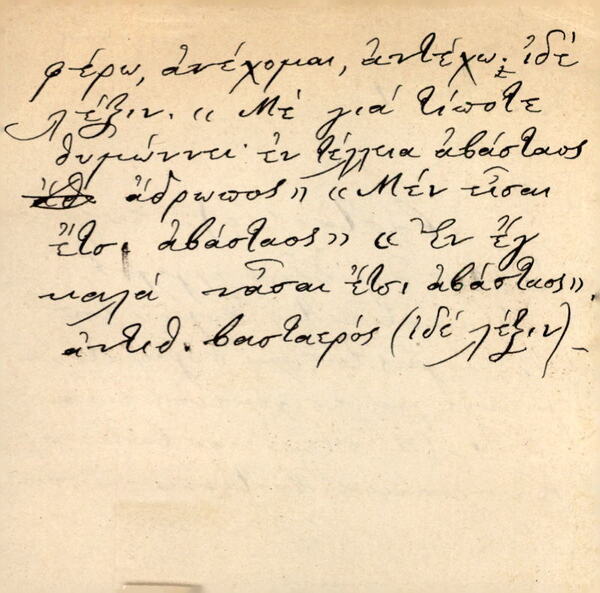 φέρω, ἀνέχομαι, ἀντέχω· ἰδέ
λέξιν. «Μέ γιά τίποτε
θυμώννει· ἐν τέλλεια ἀβάσταος
ἄδρωπος» «Μέν εἶσαι
ἔτσι ἀβάσταος» «Ἐν ἔχ
καλά νἆσαι ἔτσι ἀβάσταος».
ἀντιθ. βασταερός (ἰδέ λέξιν)_